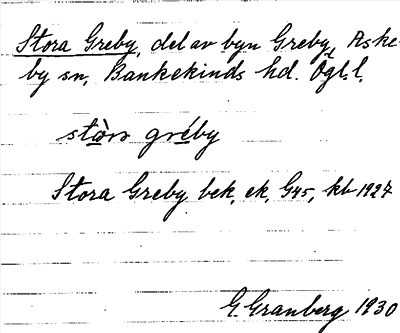 Stora Greby, del av byn Greby, Aske-
by sn, Bankekinds hd. Ögl. l.
stòrs gréby
Stora Greby bek, ek, G45, kb 1927
G. Granberg 1930